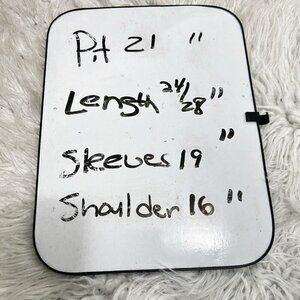 Pit 21 "
Length 24/28 "
Sleeves 19 "
Shoulder 16 "